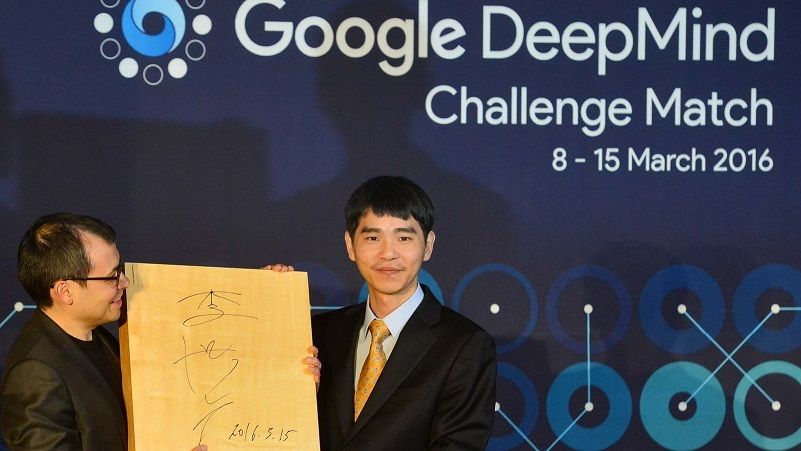 Google DeepMind
Challenge Match
8 - 15 March 2016
李
世
乭
2016. 3. 15